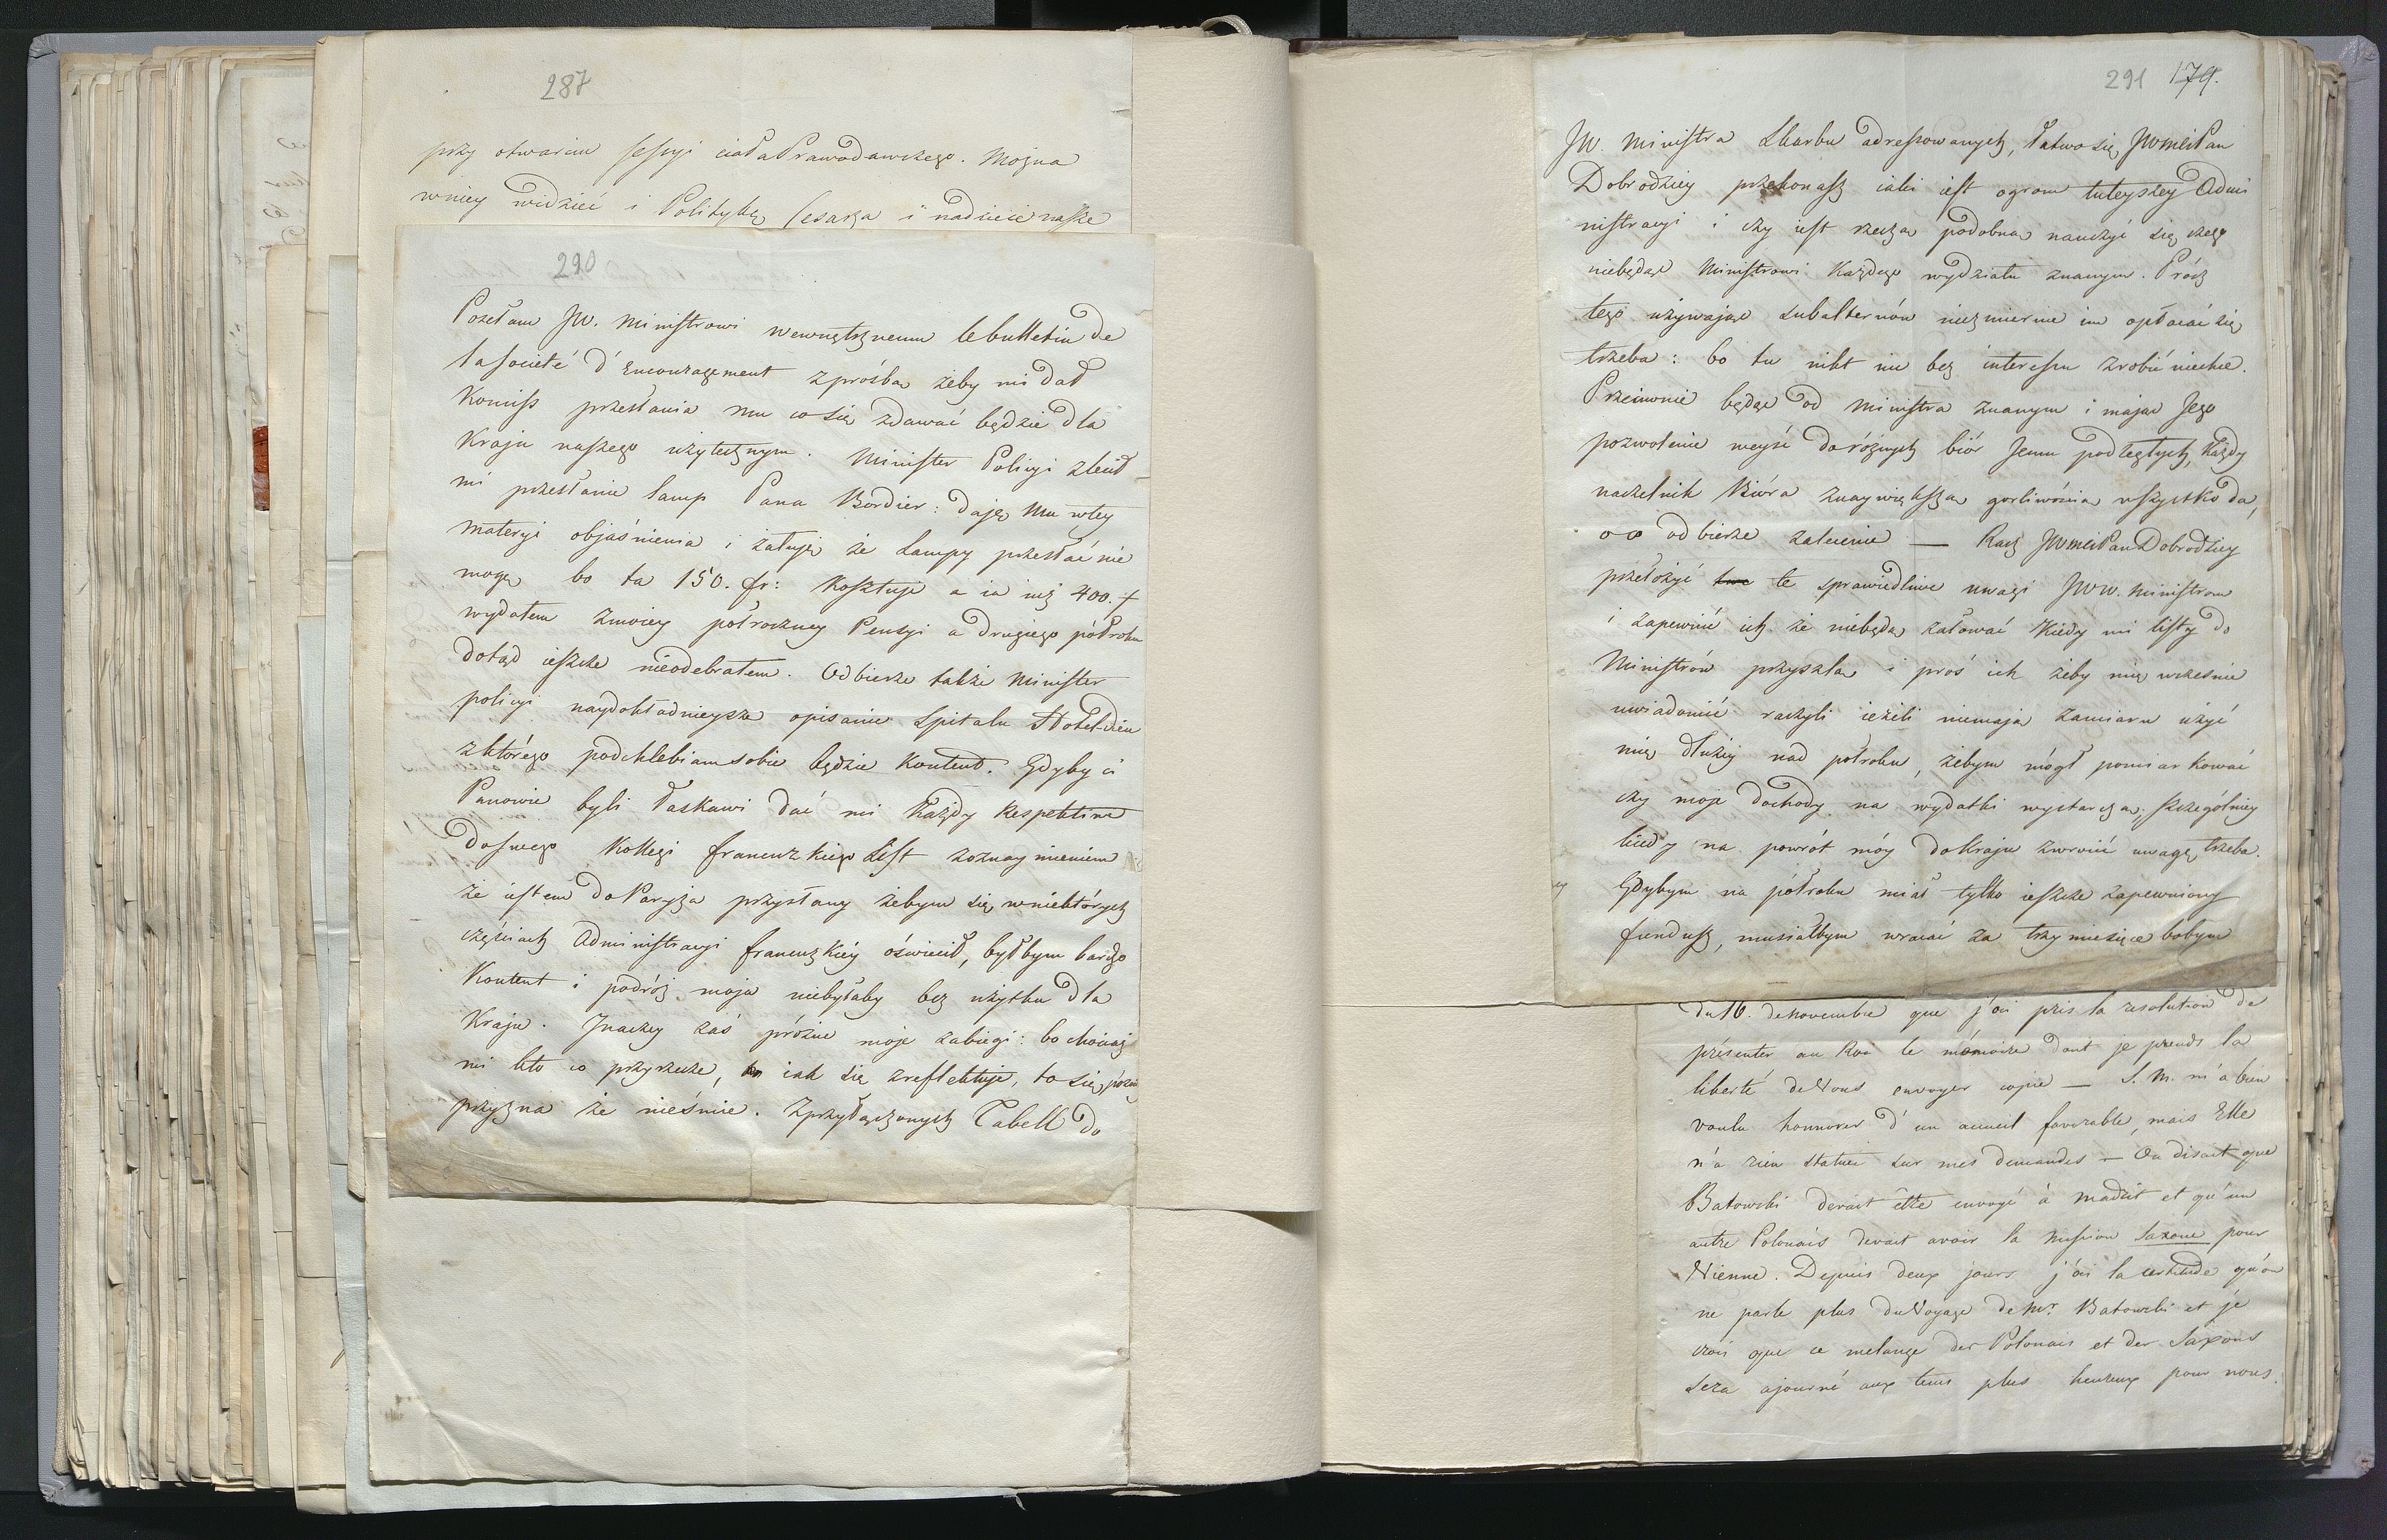 287
przy otwarciu sessyi ciała Prawodawczego. Można
wniey widzieć i Politykę Cesarza i nadzieie nasze
290
Posełam JW. Ministrowi wewnętrznemu le bulletin de
la societé d'Encouragement z prośbą żeby mi dał
Komiss przesłania mu co się zdawać będzie dla
Kraju naszego użytecznym. Minister Policyi zlecił
mi przesłanie lamp Pana Bordier: daję mu w tey
materyi objaśnienia i żałuję że Lampy przesłać nie
mogę bo ta 150. fr: kosztuje a ia iuż 400. f
wydałem z moiey półroczney Pensyi a drugiego półroku
dotąd ieszcze nieodebrałem. Odbierze także Minister
policyi naydokładnieysze opisanie Szpitalu Hotel-Dieu
z którego podchlebiam sobie będzie kontent. Gdyby ci
Panowie byli łaskawi dać mi każdy respective
do swego Kollegi francuzkiego list z oznaymieniem
że iestem do Paryża przysłany żebym się w niektórych
częściach Administracyi francuzkiéy oświecił, byłbym bardzo
Kontent i podróż moja niebyłaby bez użytku dla
Kraju. Inaczey zaś próżne moje zabiegi: bo chociaż
mi kto co przyrzecze, iak się zreflektuje, to się późniéy
przyzna że nieśmie. Z przyłączonych Tabell do
291 179.
JW. Ministra Skarbu adressowanych, łatwo się JWmći Pan
Dobrodziey przekonasz iaki iest ogrom tuteyszey Admi
nistracyi i czy iest rzeczą podobną nauczyć się czego
niebędąc Ministrowi każdego wydziału znanym. Prócz
tego używając subalternów niezmiernie im opłacać się
trzeba: bo tu nikt nic bez interessu zrobić niechce.
Przeciwnie będąc od Ministra znanym i mając Jego
pozwolenie weyść do różnych biór Jemu podległych, każdy
naczelnik Bióra z naywiększą gorliwością wszystko da,
o co odbierze zalecenie — Racz JWmći Pan Dobrodziey
przełożyć te sprawiedliwe uwagi JWW. Ministrom
i zapewnić ich że niebędą żałować kiedy mi listy do
Ministrów przyszlą i proś ich żeby mię wcześnie
uwiadomić raczyli ieżeli niemają zamiaru użyć
mię dłużéy nad półroku, żebym mógł pomiarkować
czy moje dochody na wydatki wystarczą; szczególniey
kiedy na powrót móy do Kraju zwrócić uwagę trzeba.
Gdybym na półroku miał tylko ieszcze zapewniony
fundusz, musiałbym wracać za trzy miesiące bobym
du 16. de novembre que j'ai pris la resolution de
présenter au Roi le mémoire dont je prends la
liberté de Vous envoyer copie — S. M. m'a bien
voulu honnorer d'un acceuil favorable, mais Elle
n'a rien statué sur mes demandes — On disait que
Batowski devait être envoyé à Madrit et qu'un
autre Polonais devait avoir la mission Saxone pour
Vienne. Depuis deux jours j'ai la certitude qu'on
ne parle plus du Voyage de Mr. Batowski et je
crois que ce melange des Polonais et des Saxons
sera ajourné aux tems plus heureux pour nous.